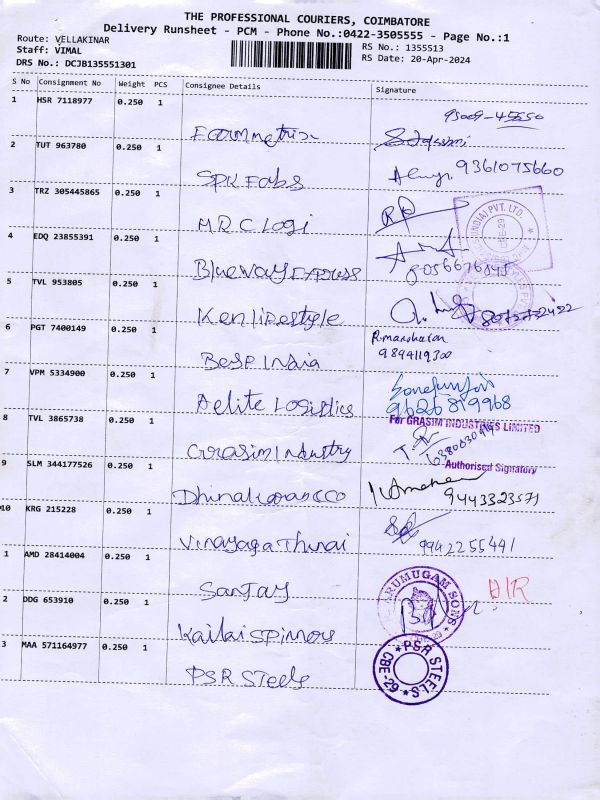 THE PROFESSIONAL COURIERS, COIMBATORE
Delivery Runsheet - PCM - Phone No.:0422-3505555 - Page No.:1
Route: VELLAKINAR
Staff: VIMAL
DRS No.: DCJB135551301
RS No.: 1355513
RS Date: 20-Apr-2024
S No Consignment No Weight PCS Consignee Details Signature
1 HSR 7118977 0.250 1
2 TUT 963780 0.250 1
SPK Fabs 9361075660
3 TRZ 305445865 0.250 1
M.R.C Logi
4 EDQ 23855391 0.250 1
Blueway Express
5 TVL 953805 0.250 1
Ken lifestyle
6 PGT 7400149 0.250 1
Besp India R.manoharan
9894119300
7 VPM 5334900 0.250 1
Delite Logistics
9626819968
8 TVL 3865738 0.250 1
Grasim Industry
For GRASIM INDUSTRIES LIMITED
Authorised Signatory
9 SLM 344177526 0.250 1
Dhinakaran & co 9443323571
10 KRG 215228 0.250 1
Vinayaga Thunai 9942255491
1 AMD 28414004 0.250 1
Sanjay
ARUMUGAM SONS
2 DDG 653910 0.250 1
Kailai Spinners
3 MAA 571164977 0.250 1
PSR Steels
PSR STEELS
CBE-29